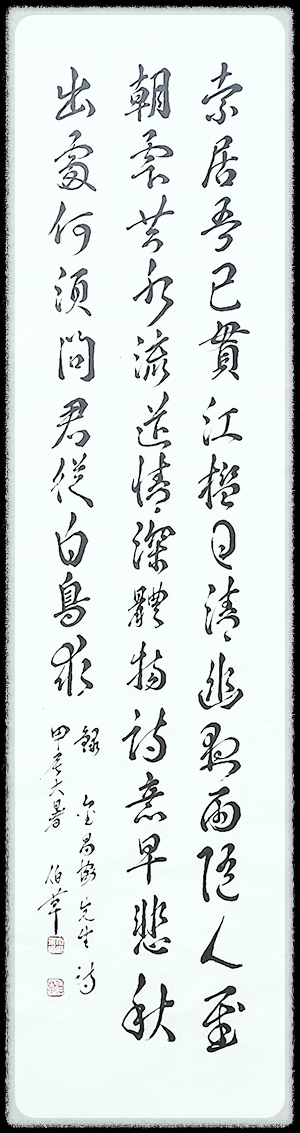 索居吾已貫江檻日清幽夜雨隨人至
朝雲共水流道情深體物詩意早悲秋
出處何須問君從白鳥求
錄 金昌協先生詩
甲辰大暑